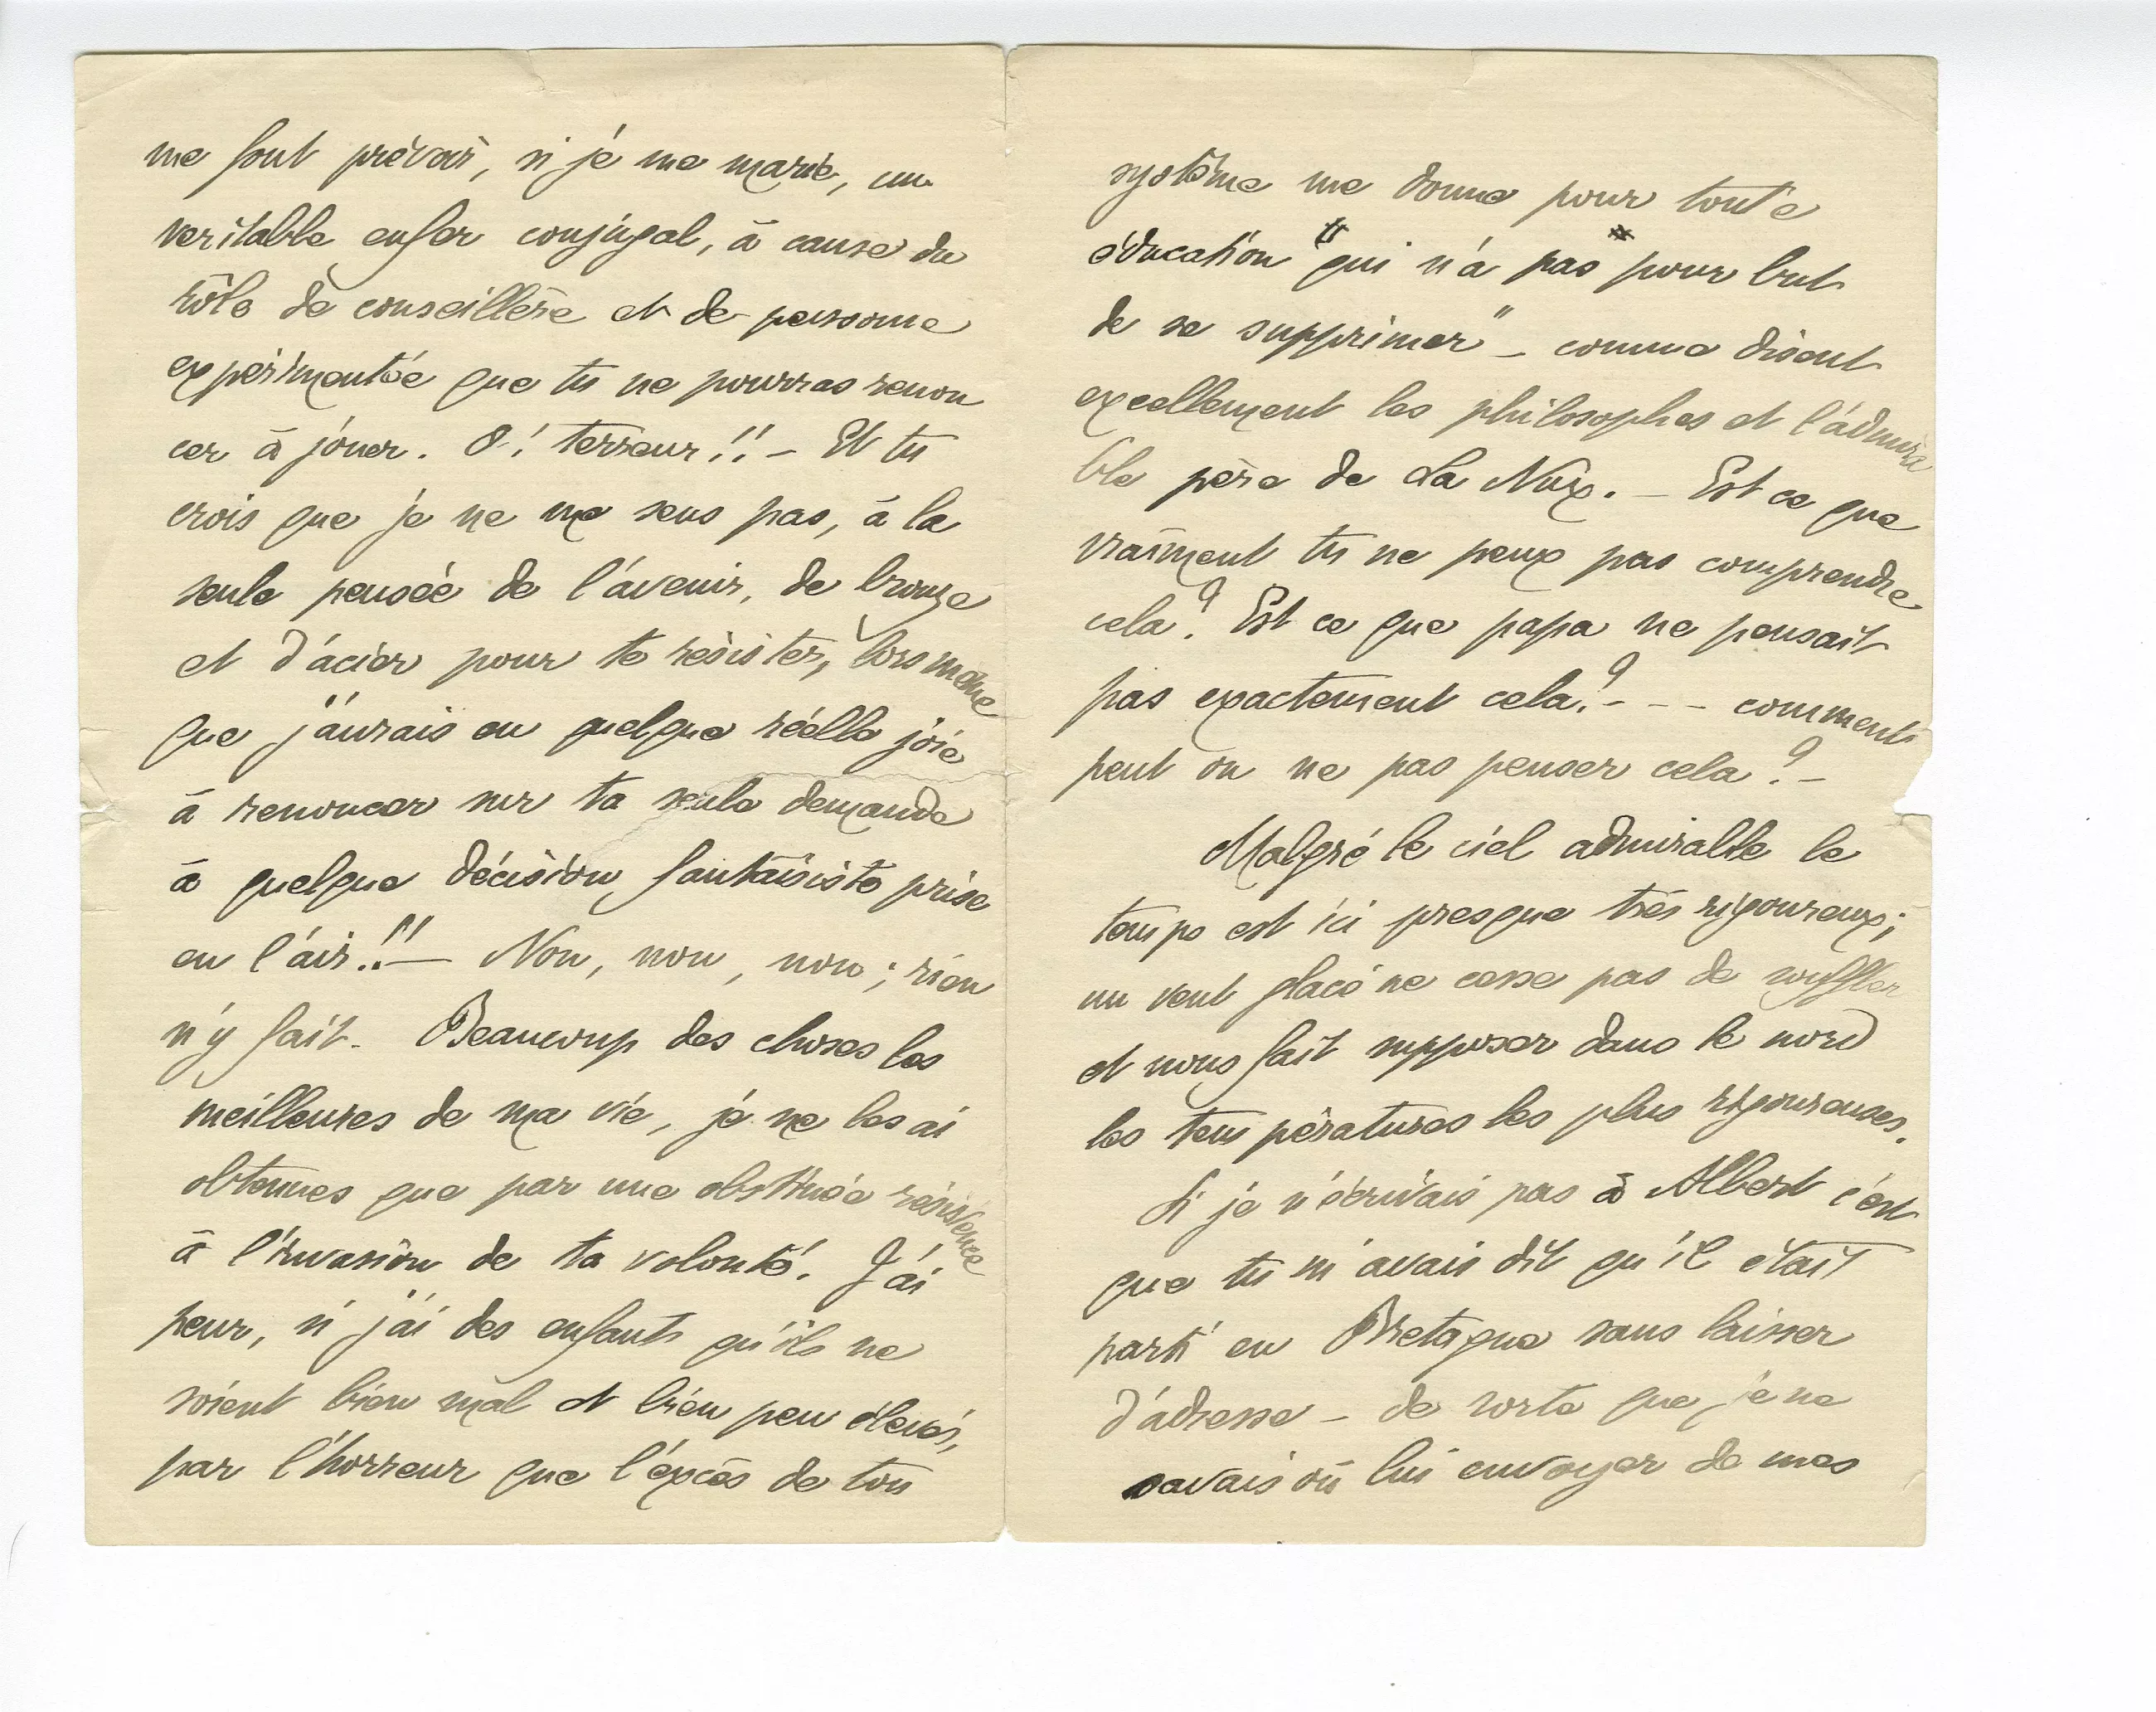 me font prévoir, si je me marie, un
veritable enfer conjugal, à cause du
rôle de conseillère et de personne
expérimentée que tu ne pourras renon
cer à jouer. O! terreur!! – Et tu
crois que je ne me sens pas, à la
seule pensée de l'avenir, de bronze
et d'acier pour te résister, lors même
que j'aurais eu quelque réelle joie
à renoncer sur ta seule demande
à quelque décision fantaisiste prise
en l'air!! — Non, non, non; rien
n'y fait. Beaucoup des choses les
meilleures de ma vie, je ne les ai
obtenues que par une obstinée résistence
à l'invasion de ta volonté. J'ai
peur, si j'ai des enfants qu'ils ne
soient bien mal et bien peu élevés,
par l'horreur que l'excès de ton
système me donne pour toute
éducation "qui n'a pas pour but
de se supprimer" – comme disent
excellement les philosophes et l'admira
ble père de La Nux. – Est ce que
vraiment tu ne peux pas comprendre
cela? Est ce que papa ne pensait
pas exactement cela? - - - comment
peut on ne pas penser cela? –
Malgré le ciel admirable le
temps est ici presque très rigoureux;
un vent glacé ne cesse pas de souffler
et nous fait supposer dans le nord
les températures les plus rigoureuses.
Si je n'écrivais pas à Albert c'est
que tu m'avais dit qu'il était
parti en Bretagne sans laisser
d'adresse – de sorte que je ne
savais où lui envoyer de mes